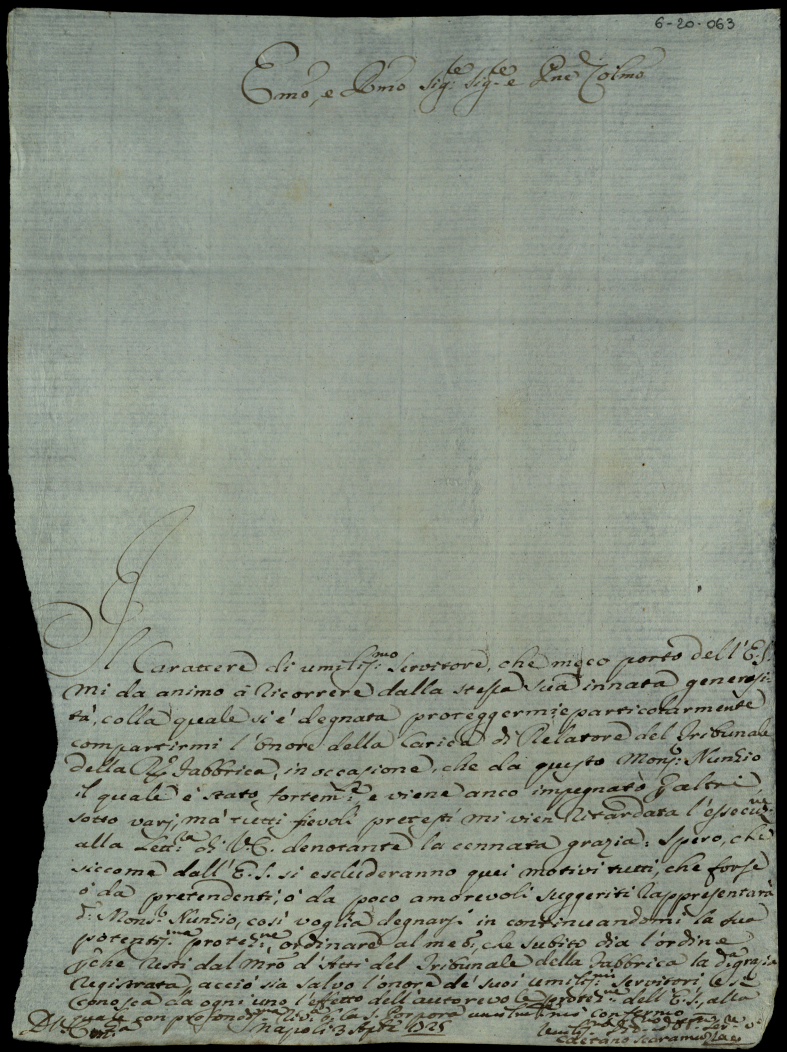 6-20-063
Emo, e Rmo Sig:re Sig:re e Pne Colmo
Il Carattere di umiliss:mo Servitore, che meco porto dell'E.S.
mi da animo à ricorrere dalla stessa sua innata generosi-
tà, colla quale si è degnata proteggermi e particolarmente
compartirmi l'onore della Carica di Relatore del Tribunale
della Rda Fabbrica, in occasione, che da questo Mons:r Nunzio
il quale è stato fortem:te e viene anco impegnato p altri,
sotto varj, mà tutti fievoli pretesti mi vien ritardata l'essecuz:ne
alla Lett:ra di V.E. denotante la cennata grazia: Spero, che
siccome dall'E.S. si escluderanno quei motivi tutti, che forse
ò da pretendenti, ò da poco amorevoli suggeriti rappresentarà
d:o Mons:r Nunzio, così voglia degnarsi in continuandomi la sua
potentiss:ma protez:ne, ordinare al med:o, che subito dia l'ordine
pche resti dal Mro d'Atti del Tribunale della Fabbrica la d:a grazia
registrata, acciò sia salvo l'onore de' suoi umiliss:mi servitori, e si
conosca da ogni uno l'effetto dell'autorevole protez:ne dell'E.S., alla
quale con profondiss:ma la S. Porpora umilmente mi confermo
Napoli 3 Aple 1725
Gaetano